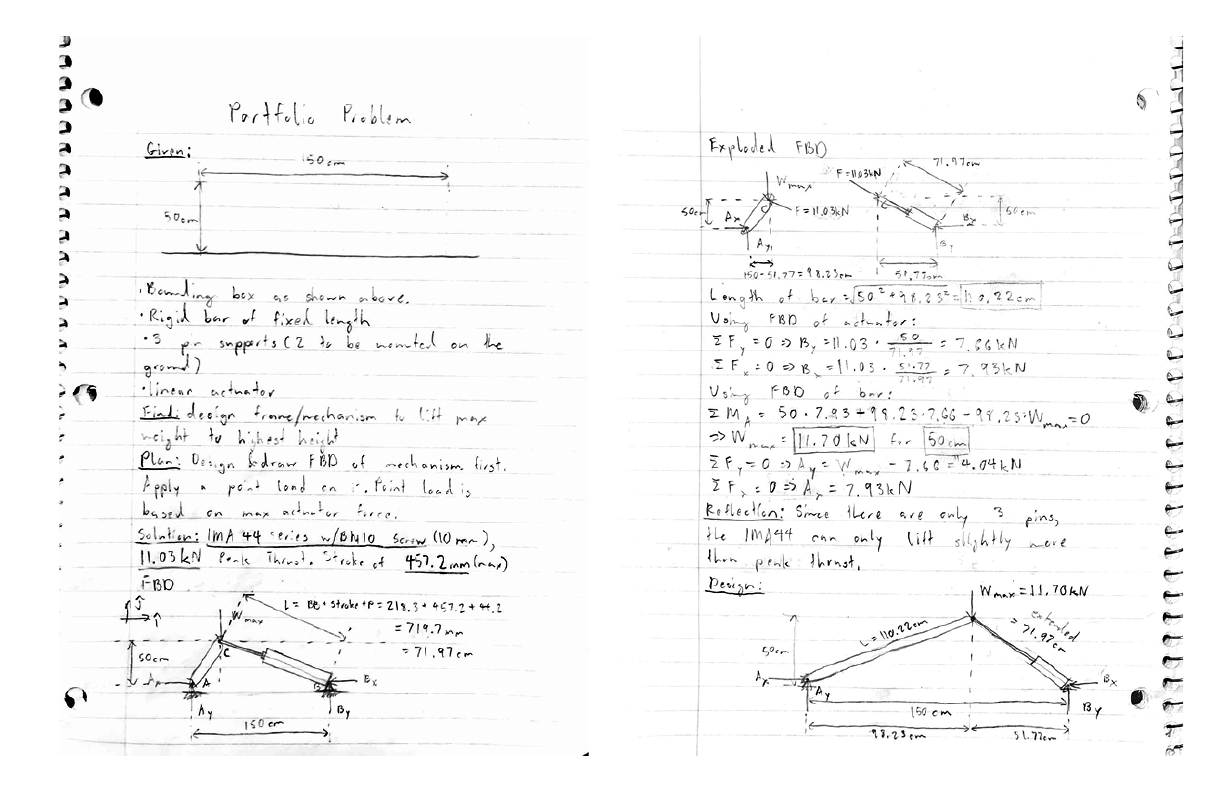 Portfolio Problem
Given:
150cm
50cm
·Bounding box as shown above.
·Rigid bar of fixed length
·3 pin supports (2 to be mounted on the
ground)
·linear actuator
Find: design frame/mechanism to lift max
weight to highest height
Plan: Design & draw FBD of mechanism first.
Apply a point load on it. Point load is
based on max actuator force.
Solution: IMA 44 series w/BM10 Screw (10 mm),
11.03 kN Peak Thrust. Stroke of 457.2 mm (max)
FBD
L = BB + stroke + P = 218.3 + 457.2 + 44.2
= 719.7 mm
= 71.97 cm
j
i
Wmax
50cm
C
Ax
A
B
Bx
Ay
By
150 cm
Exploded FBD
71.97cm
Wmax
F=11.03kN
50cm
Ax
C
F=11.03kN
C
Bx
50cm
Ay
By
150-51.77=98.23cm
51.77cm
Length of bar = √50²+98.23² = 110.22cm
Using FBD of actuator:
ΣFy=0 => By=11.03 · 50/71.97 = 7.66kN
ΣFx=0 => Bx=11.03 · 51.77/71.97 = 7.93kN
Using FBD of bar:
ΣMA = 50·7.93+98.23·7.66-98.23·Wmax=0
=> Wmax= 11.70kN for 50cm
ΣFy=0 => Ay=Wmax-7.66=4.04kN
ΣFx=0 => Ax=7.93kN
Reflection: Since there are only 3 pins,
the IMA44 can only lift slightly more
than peak thrust.
Design:
Wmax=11.70kN
L=110.22cm
Extended
=71.97cm
50cm
Ax
Ay
Bx
By
150cm
98.23cm
51.77cm